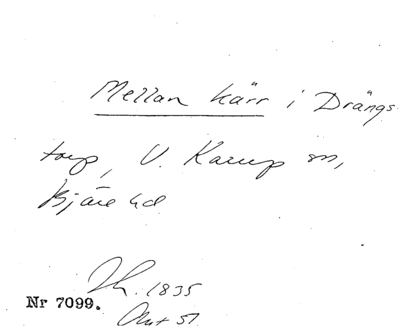 Mellan kärr i Drängs-
torp, V. Karup sn,
Bjäre hd
1835
Nr 7099.
Akt 51